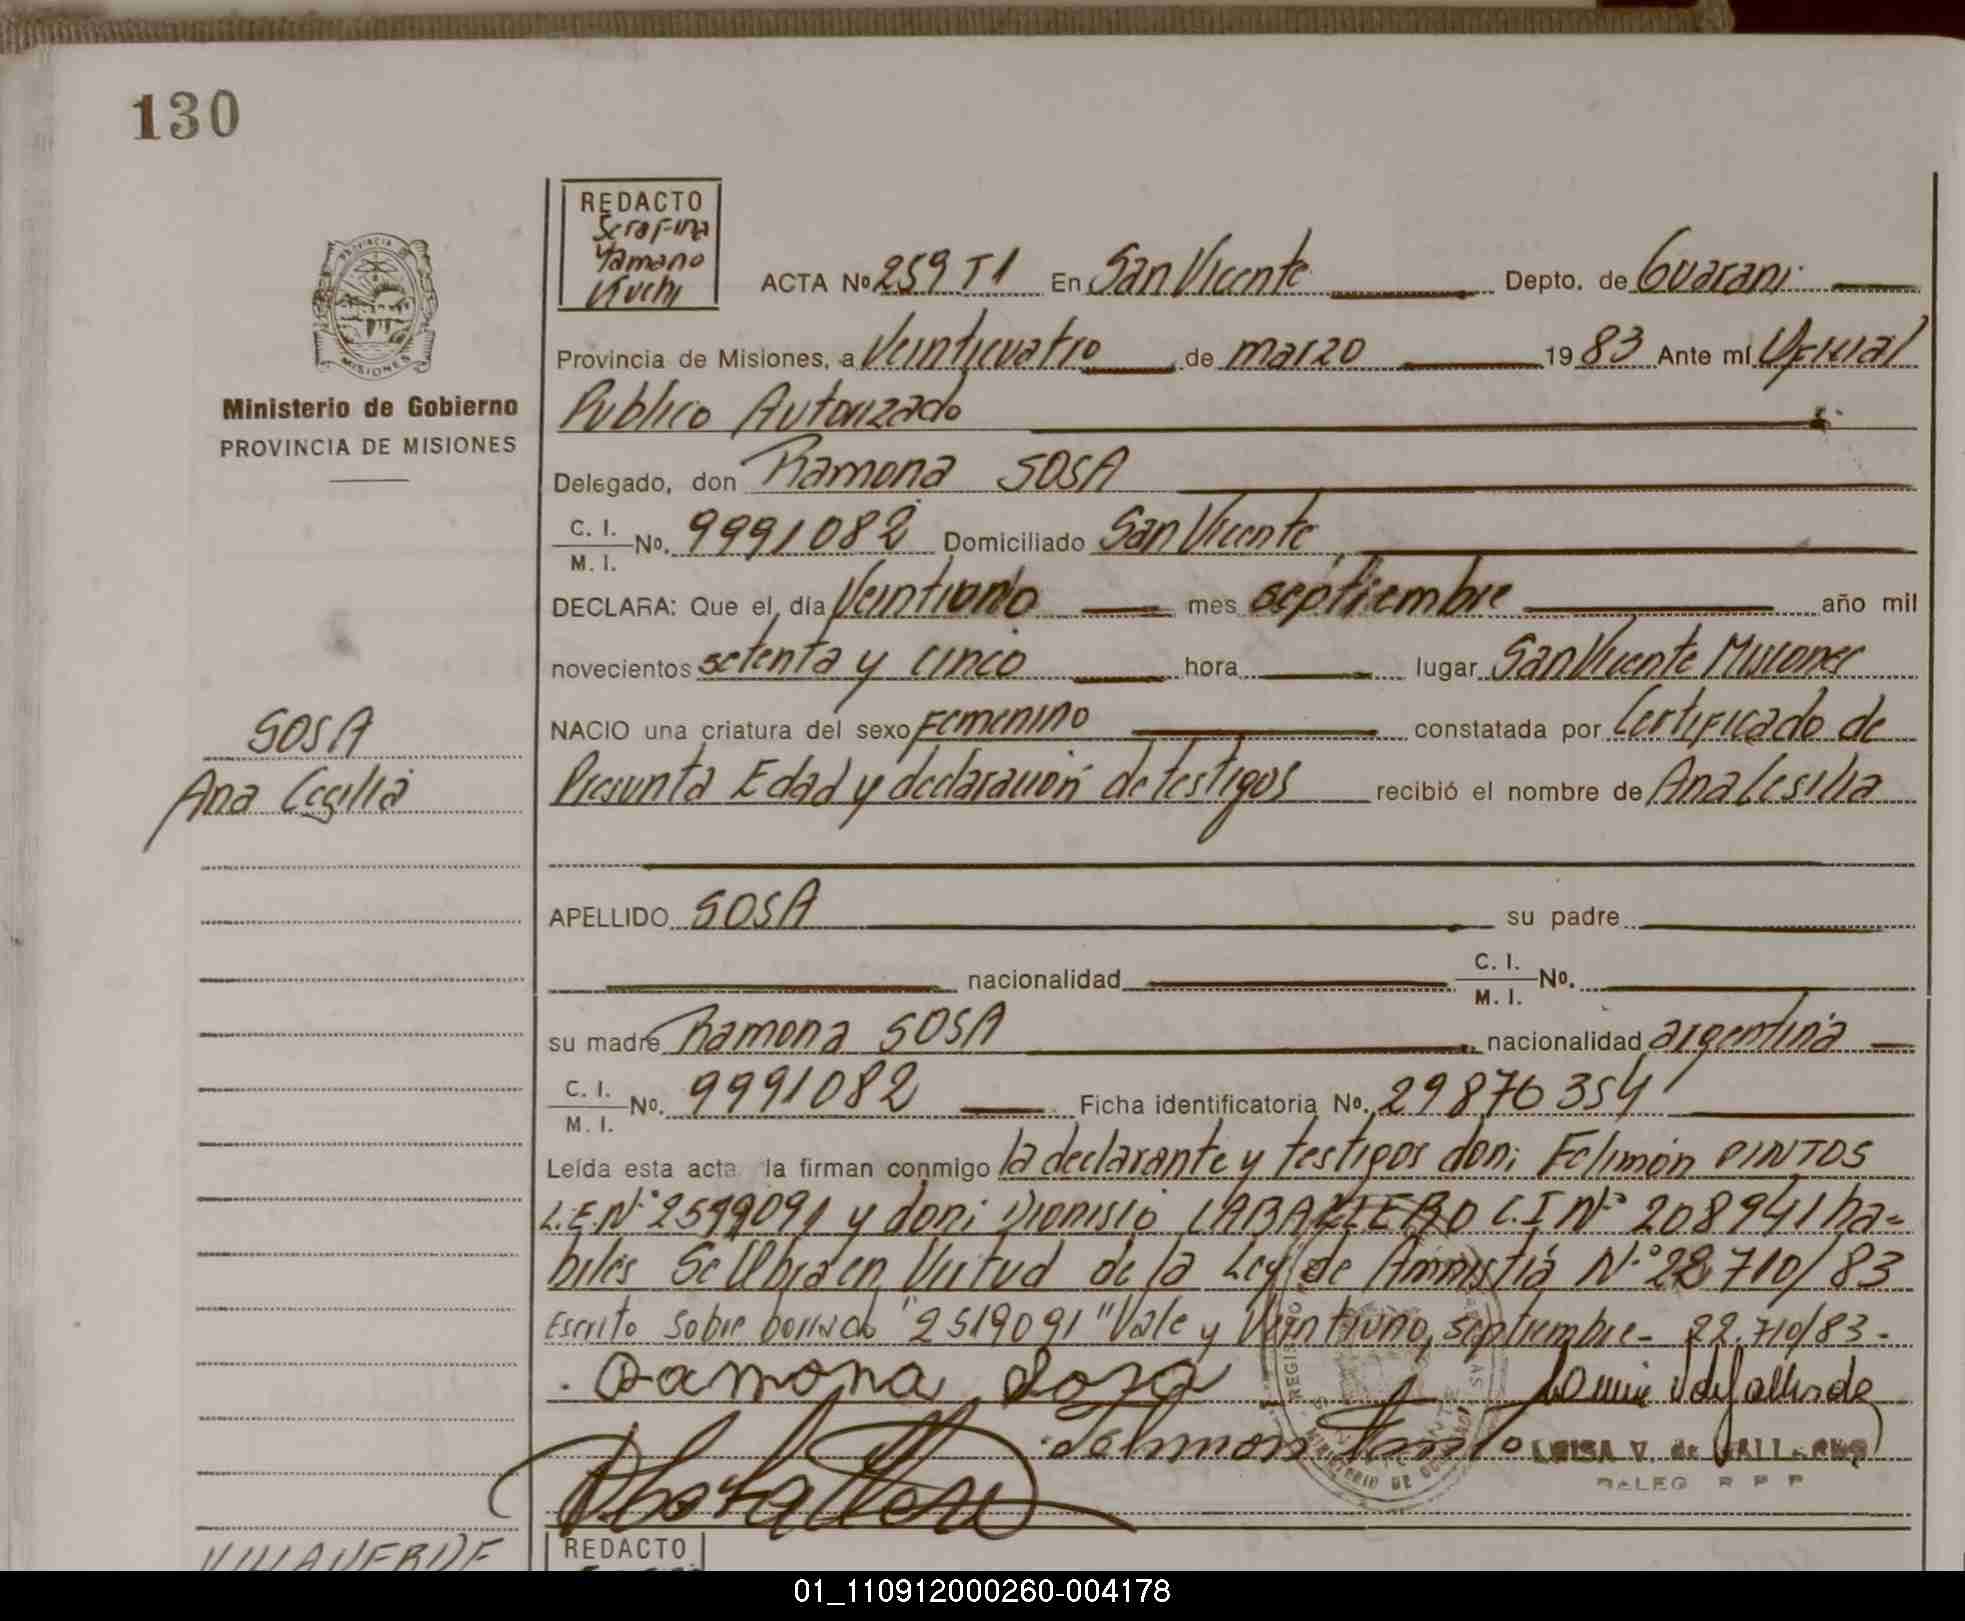 130
REDACTO
Serafina
Yamano
Kuchi
ACTA No 259 T1 En San Vicente Depto. de Guarani
Provincia de Misiones, a Veinticuatro de marzo 1983 Ante mí Oficial
Publico Autorizado
Ministerio de Gobierno
PROVINCIA DE MISIONES
Delegado, don Ramona SOSA
C. I.
M. I. No. 9991082 Domiciliado San Vicente
DECLARA: Que el día Veintiuno mes septiembre año mil
novecientos setenta y cinco hora lugar San Vicente Misiones
NACIO una criatura del sexo Femenino constatada por Certificado de
Presunta Edad y declaración de testigos recibió el nombre de Ana Cesilia
SOSA
Ana Cesilia
APELLIDO SOSA su padre
nacionalidad C. I.
M. I. No.
su madre Ramona SOSA nacionalidad argentina
C. I.
M. I. No. 9991082 Ficha identificatoria No. 29876354
Leída esta acta la firman conmigo la declarante y testigos don: Felimón PINTOS
L.E.Nº 2519091 y don: Dionisio CABALLERO C.I Nº 208941 ha-
biles Se Labra en Virtud de la Ley de Amnistia Nº 22710/83
Escrito sobre borrado "2519091" Vale y Veintiuno, septiembre- 22.710/83-
Ramona Sosa
Felimon Pinto
LUISA V. de
DELEG R P P
VILLAVERDE
REDACTO
01_110912000260-004178